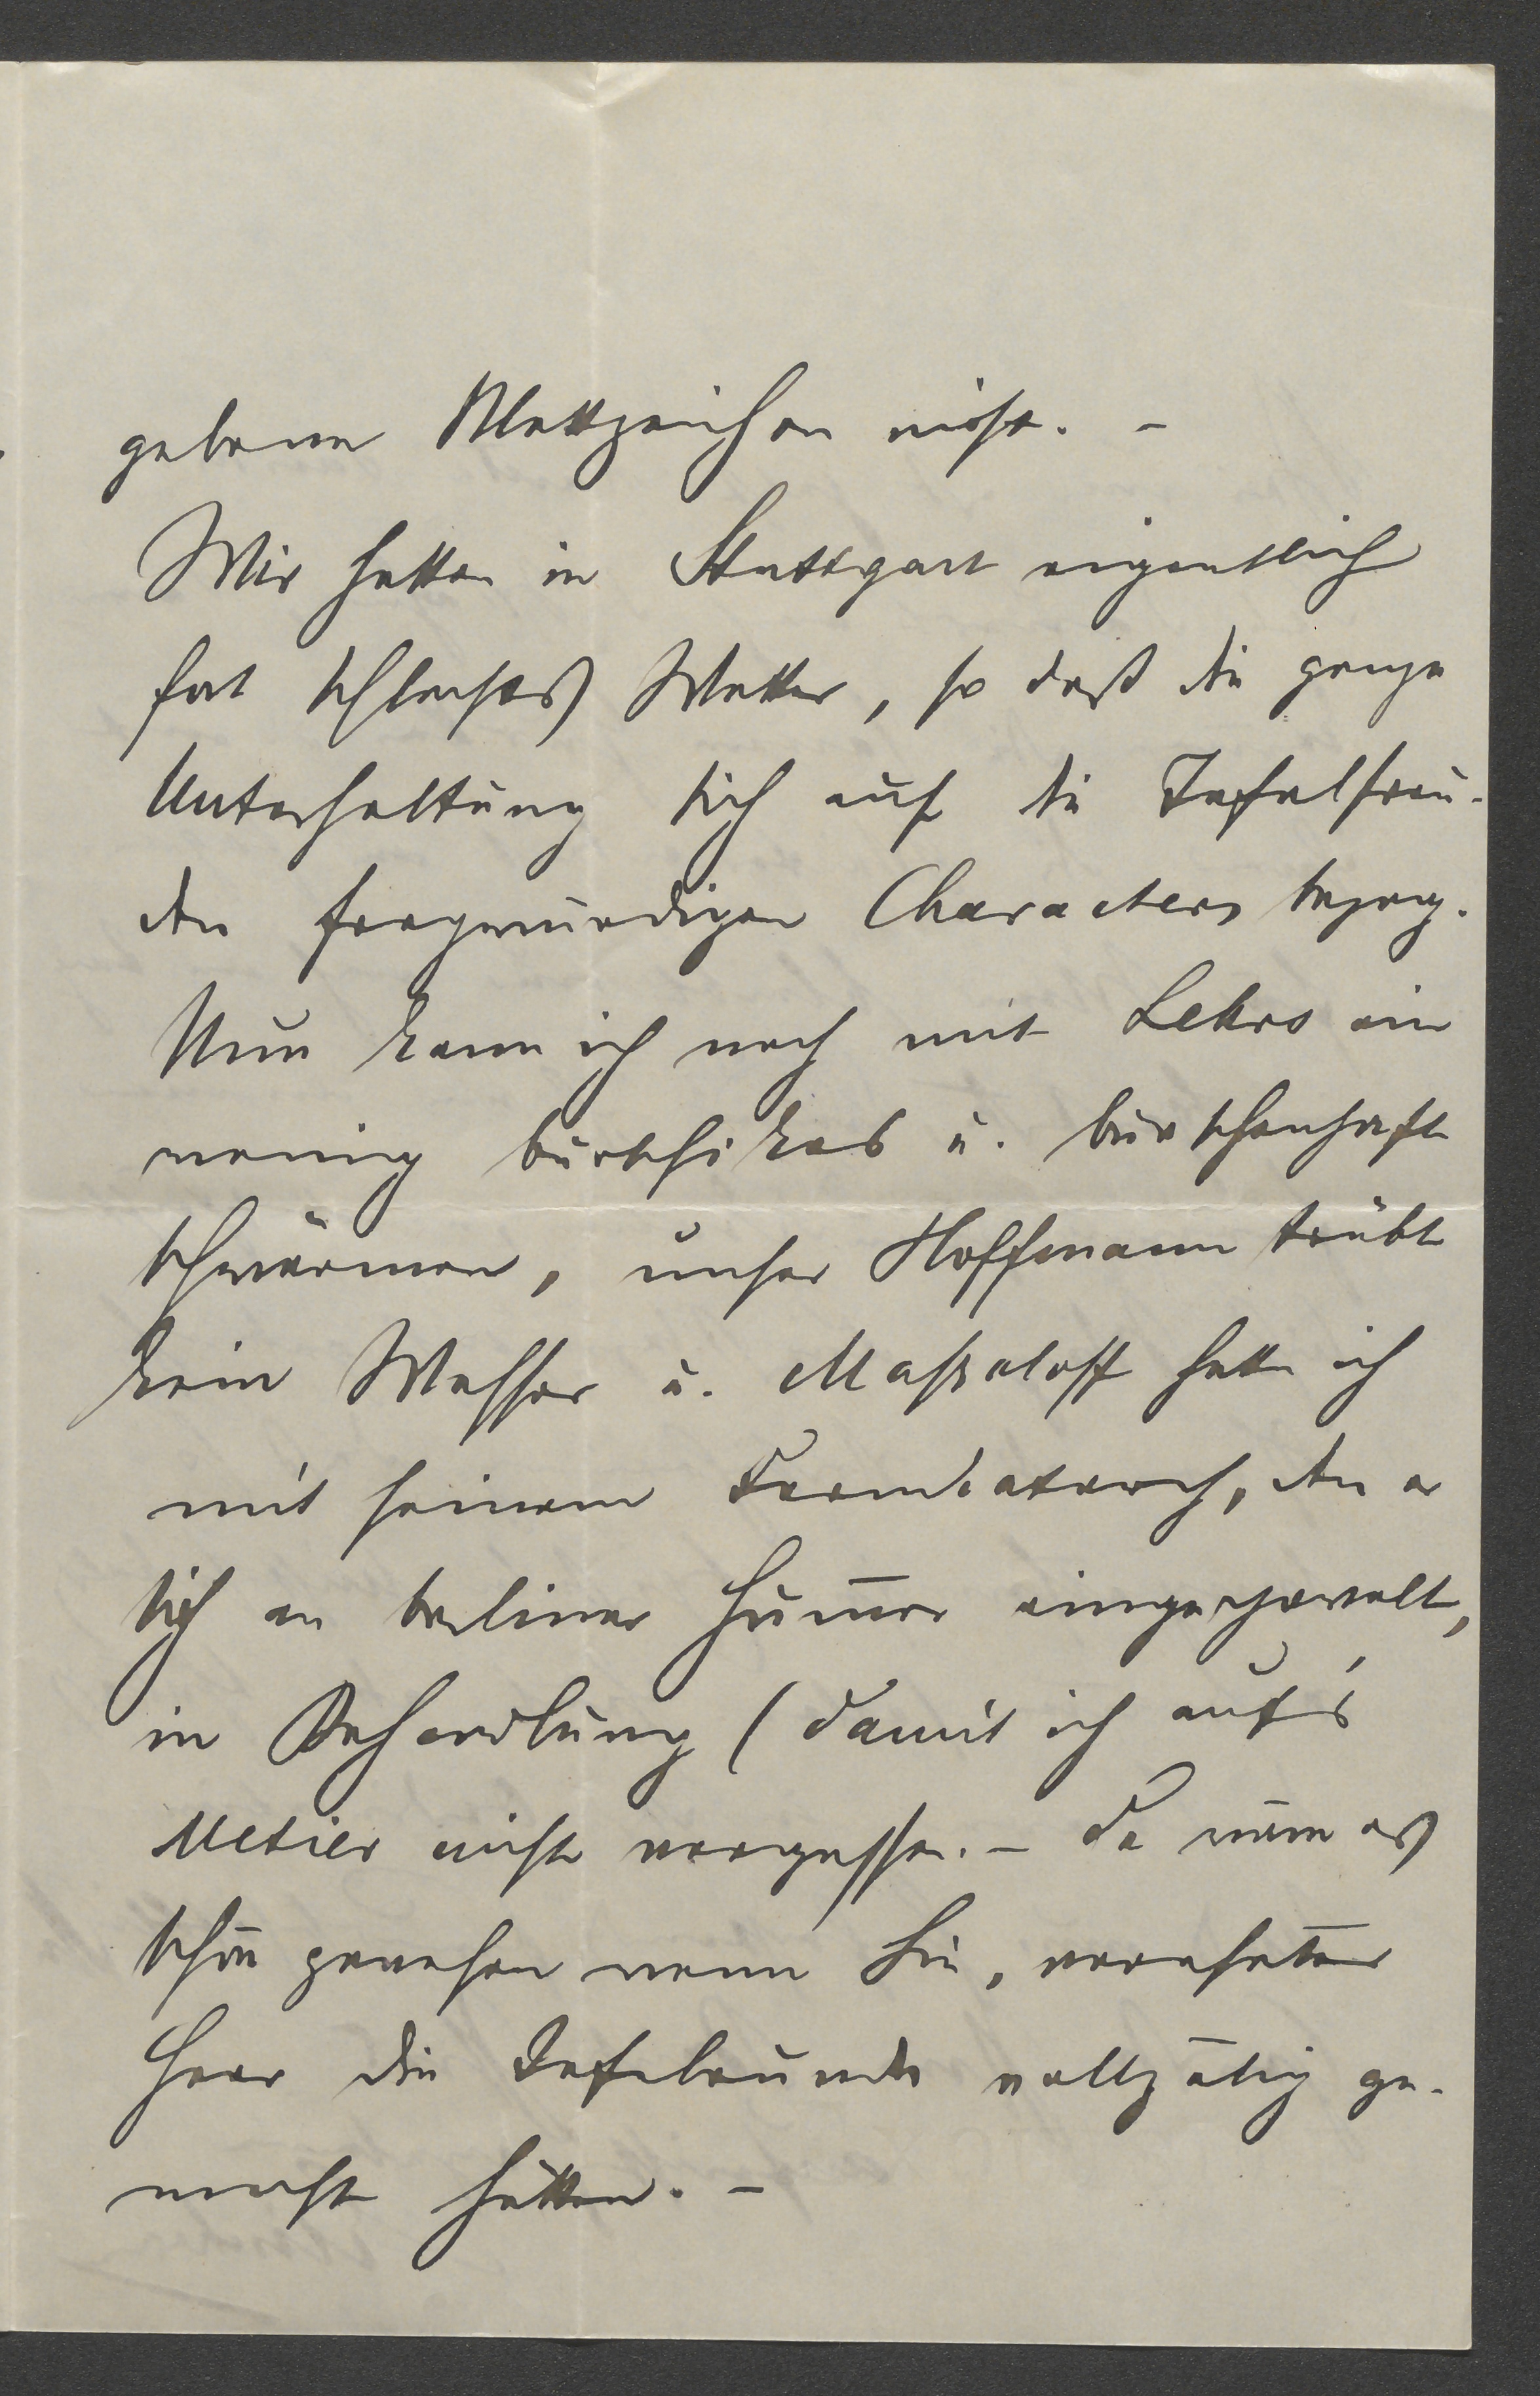 gebenen Wettzeichen nicht. -
Wir hatten in Stuttgart eigentlich
fort schlechtes Wetter, so daß die ganze
Unterhaltung sich auf die Tafelfreu-
den fragwürdigen Characters bezog.
Nun kann ich noch mit Lehrs ein
wenig burschikos u. burschenhaft
schwärmen, unser Hoffmann trübt
kein Wasser u. hatte ich
mit seinem Darmkatarrh, den er
sich an berliner Hum̄er eingeholt,
in Behandlung (damit ich auf's
Metier nicht vergesse. - Da wäre es
schön gewesen wenn Sie, verehrter
Herr die Tafelrunde vollzälig ge-
macht hätten. -